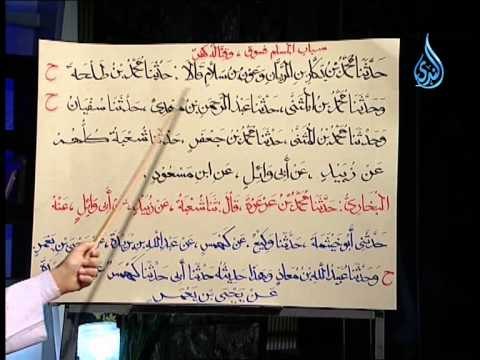 سباب المسلم فسوق، وقتاله كفر
حدثنا محمد بن بكار بن الريان وعون بن سلام قالا: حدثنا محمد بن طلحة ح
وحدثنا محمد بن المثنى، حدثنا عبد الرحمن بن مهدي، حدثنا سفيان ح
وحدثنا محمد بن المثنى، حدثنا محمد بن جعفر، حدثنا شعبة كلهم
عن زبيد، عن أبي وائل، عن ابن مسعود.
البخاري: حدثنا محمد بن عرعرة، قال: ثنا شعبة، عن زبيد، عن أبي وائل، عنه
حدثني أبو خيثمة، حدثنا وكيع، عن كهمس، عن عبد الله بن بريدة، عن يحيى بن يعمر
ح وحدثنا عبيد الله بن معاذ وهذا حديثه حدثنا أبي حدثنا كهمس
عن يحيى بن يعمر
الندى